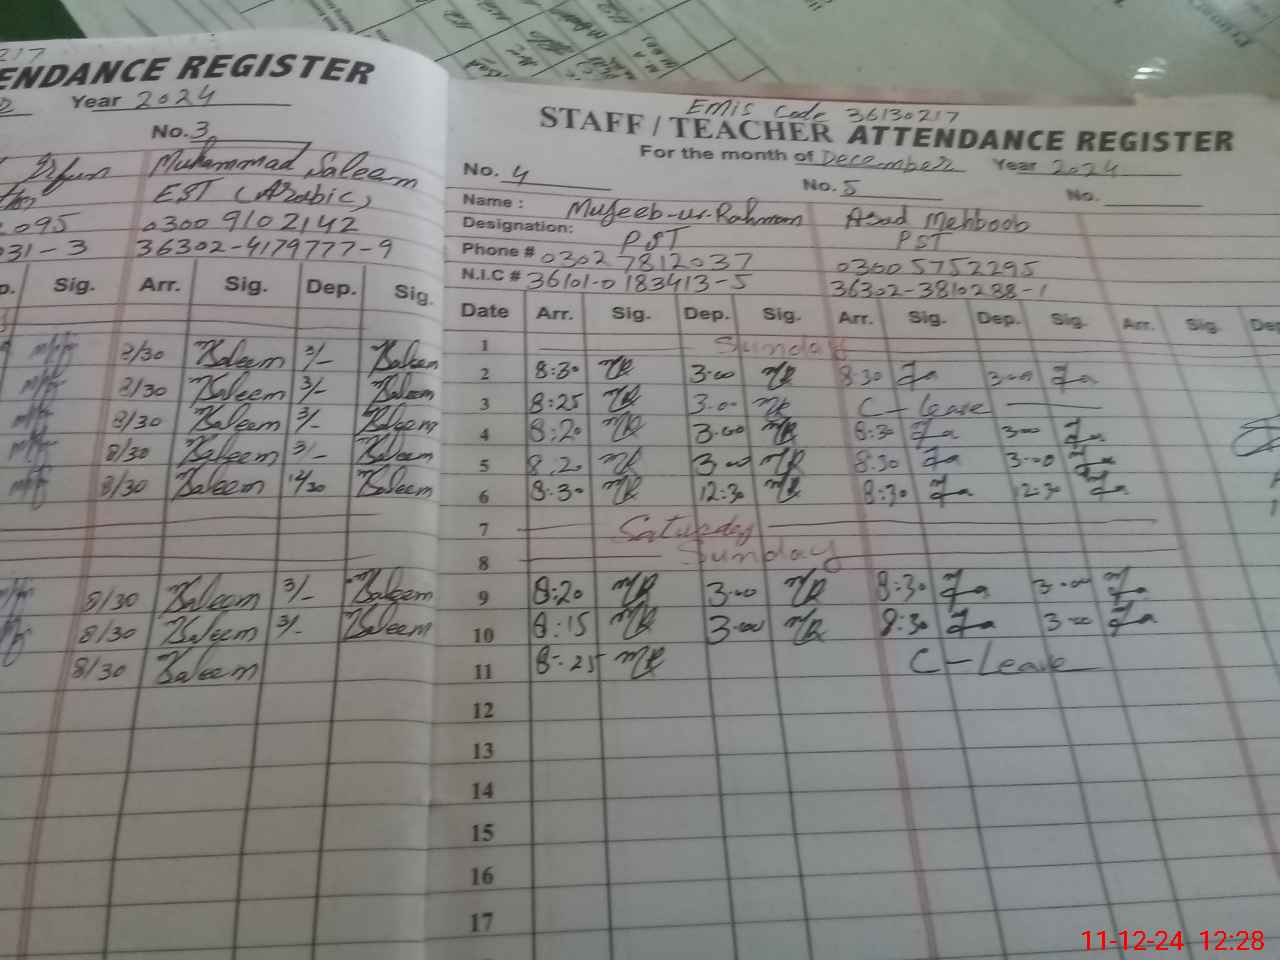 217
ENDANCE REGISTER
Year 2024
No. 3
Irfan Muhammad Saleem
EST (Arabic)
095 0300 9102142
031-3 36302-4179777-9
p. Sig. Arr. Sig. Dep. Sig.
8/30 Saleem 3/- Saleem
8/30 Saleem 3/- Saleem
8/30 Saleem 3/- Saleem
8/30 Saleem 3/- Saleem
8/30 Saleem 12/30 Saleem
8/30 Saleem 3/- Saleem
8/30 Saleem 3/- Saleem
8/30 Saleem
EMIS Code 36130217
STAFF / TEACHER ATTENDANCE REGISTER
For the month of December Year 2024
No. 4 No. 5 No.
Name : Mujeeb-ur-Rahman Asad Mehboob
Designation: PST PST
Phone # 0302 7812037 0300 5752295
N.I.C # 36101-0183413-5 36302-3810288-1
Date Arr. Sig. Dep. Sig. Arr. Sig. Dep. Sig. Arr. Sig. De
1 Sunday
2 8:30 MR 3:00 MR 8:30 3:00
3 8:25 MR 3:00 MR C-Leave
4 8:20 MR 3:00 MR 8:30 3:00
5 8:20 MR 3:00 MR 8:30 3:00
6 8:30 MR 12:30 MR 8:30 12:30
7 Saturday
8 Sunday
9 8:20 MR 3:00 MR 8:30 3:00
10 8:15 MR 3:00 MR 8:30 3:00
11 8:25 MR C-Leave
12
13
14
15
16
17
11-12-24 12:28